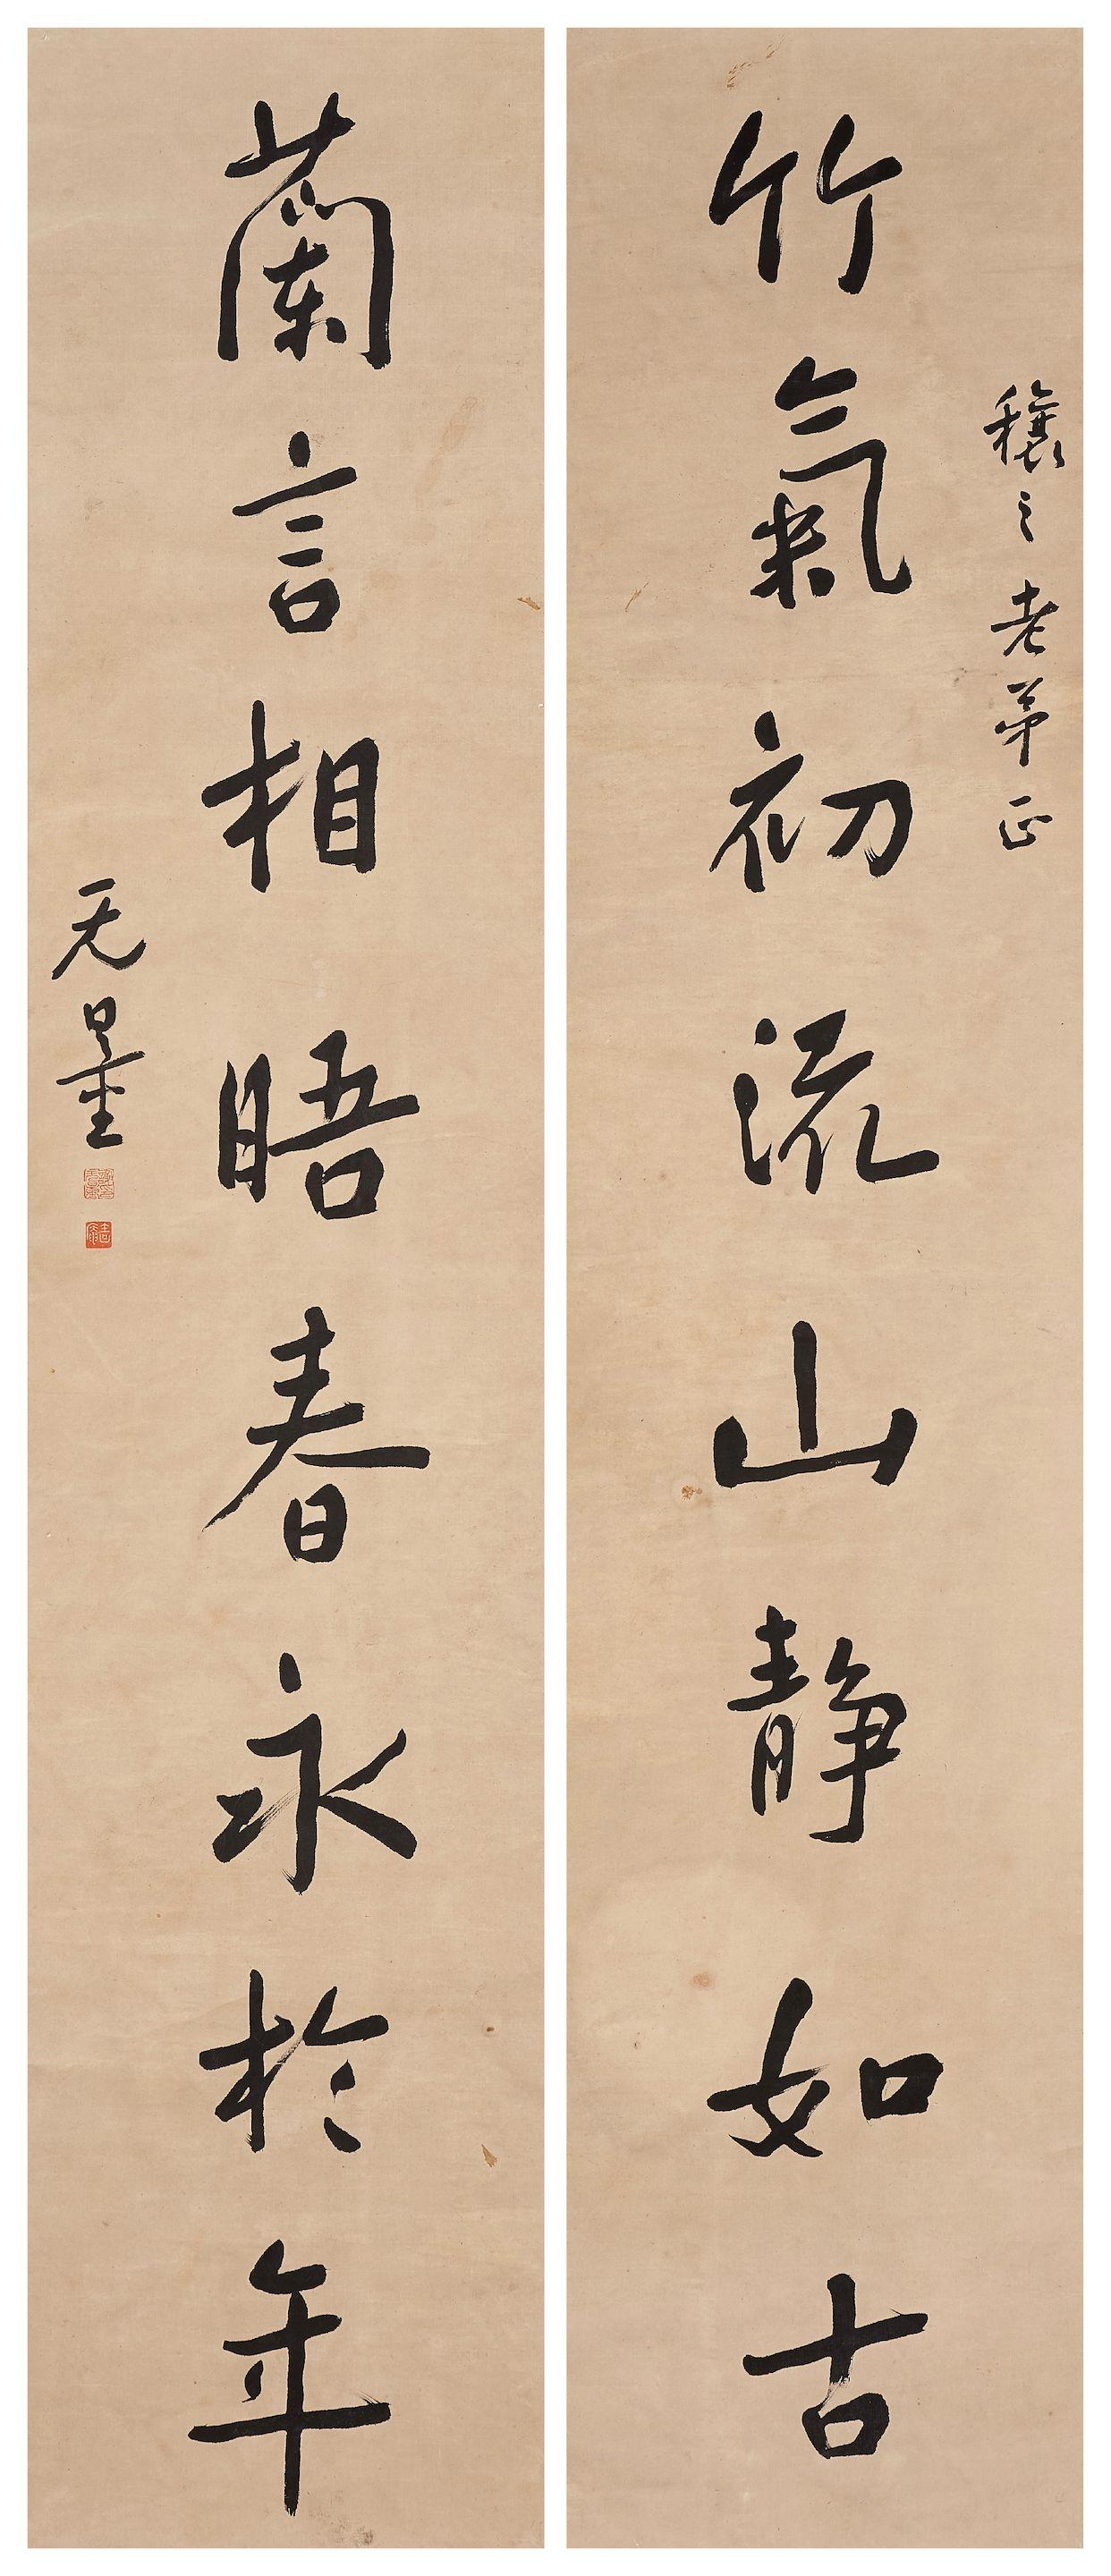 穰之老弟正
竹氣初流山靜如古
蘭言相晤春永於年
无量